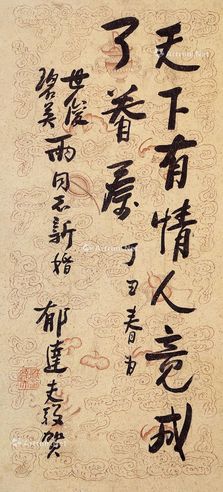 天下有情人竟成
了眷屬 丁丑春為
世俊
碧英
兩同志新婚 郁達夫敬賀